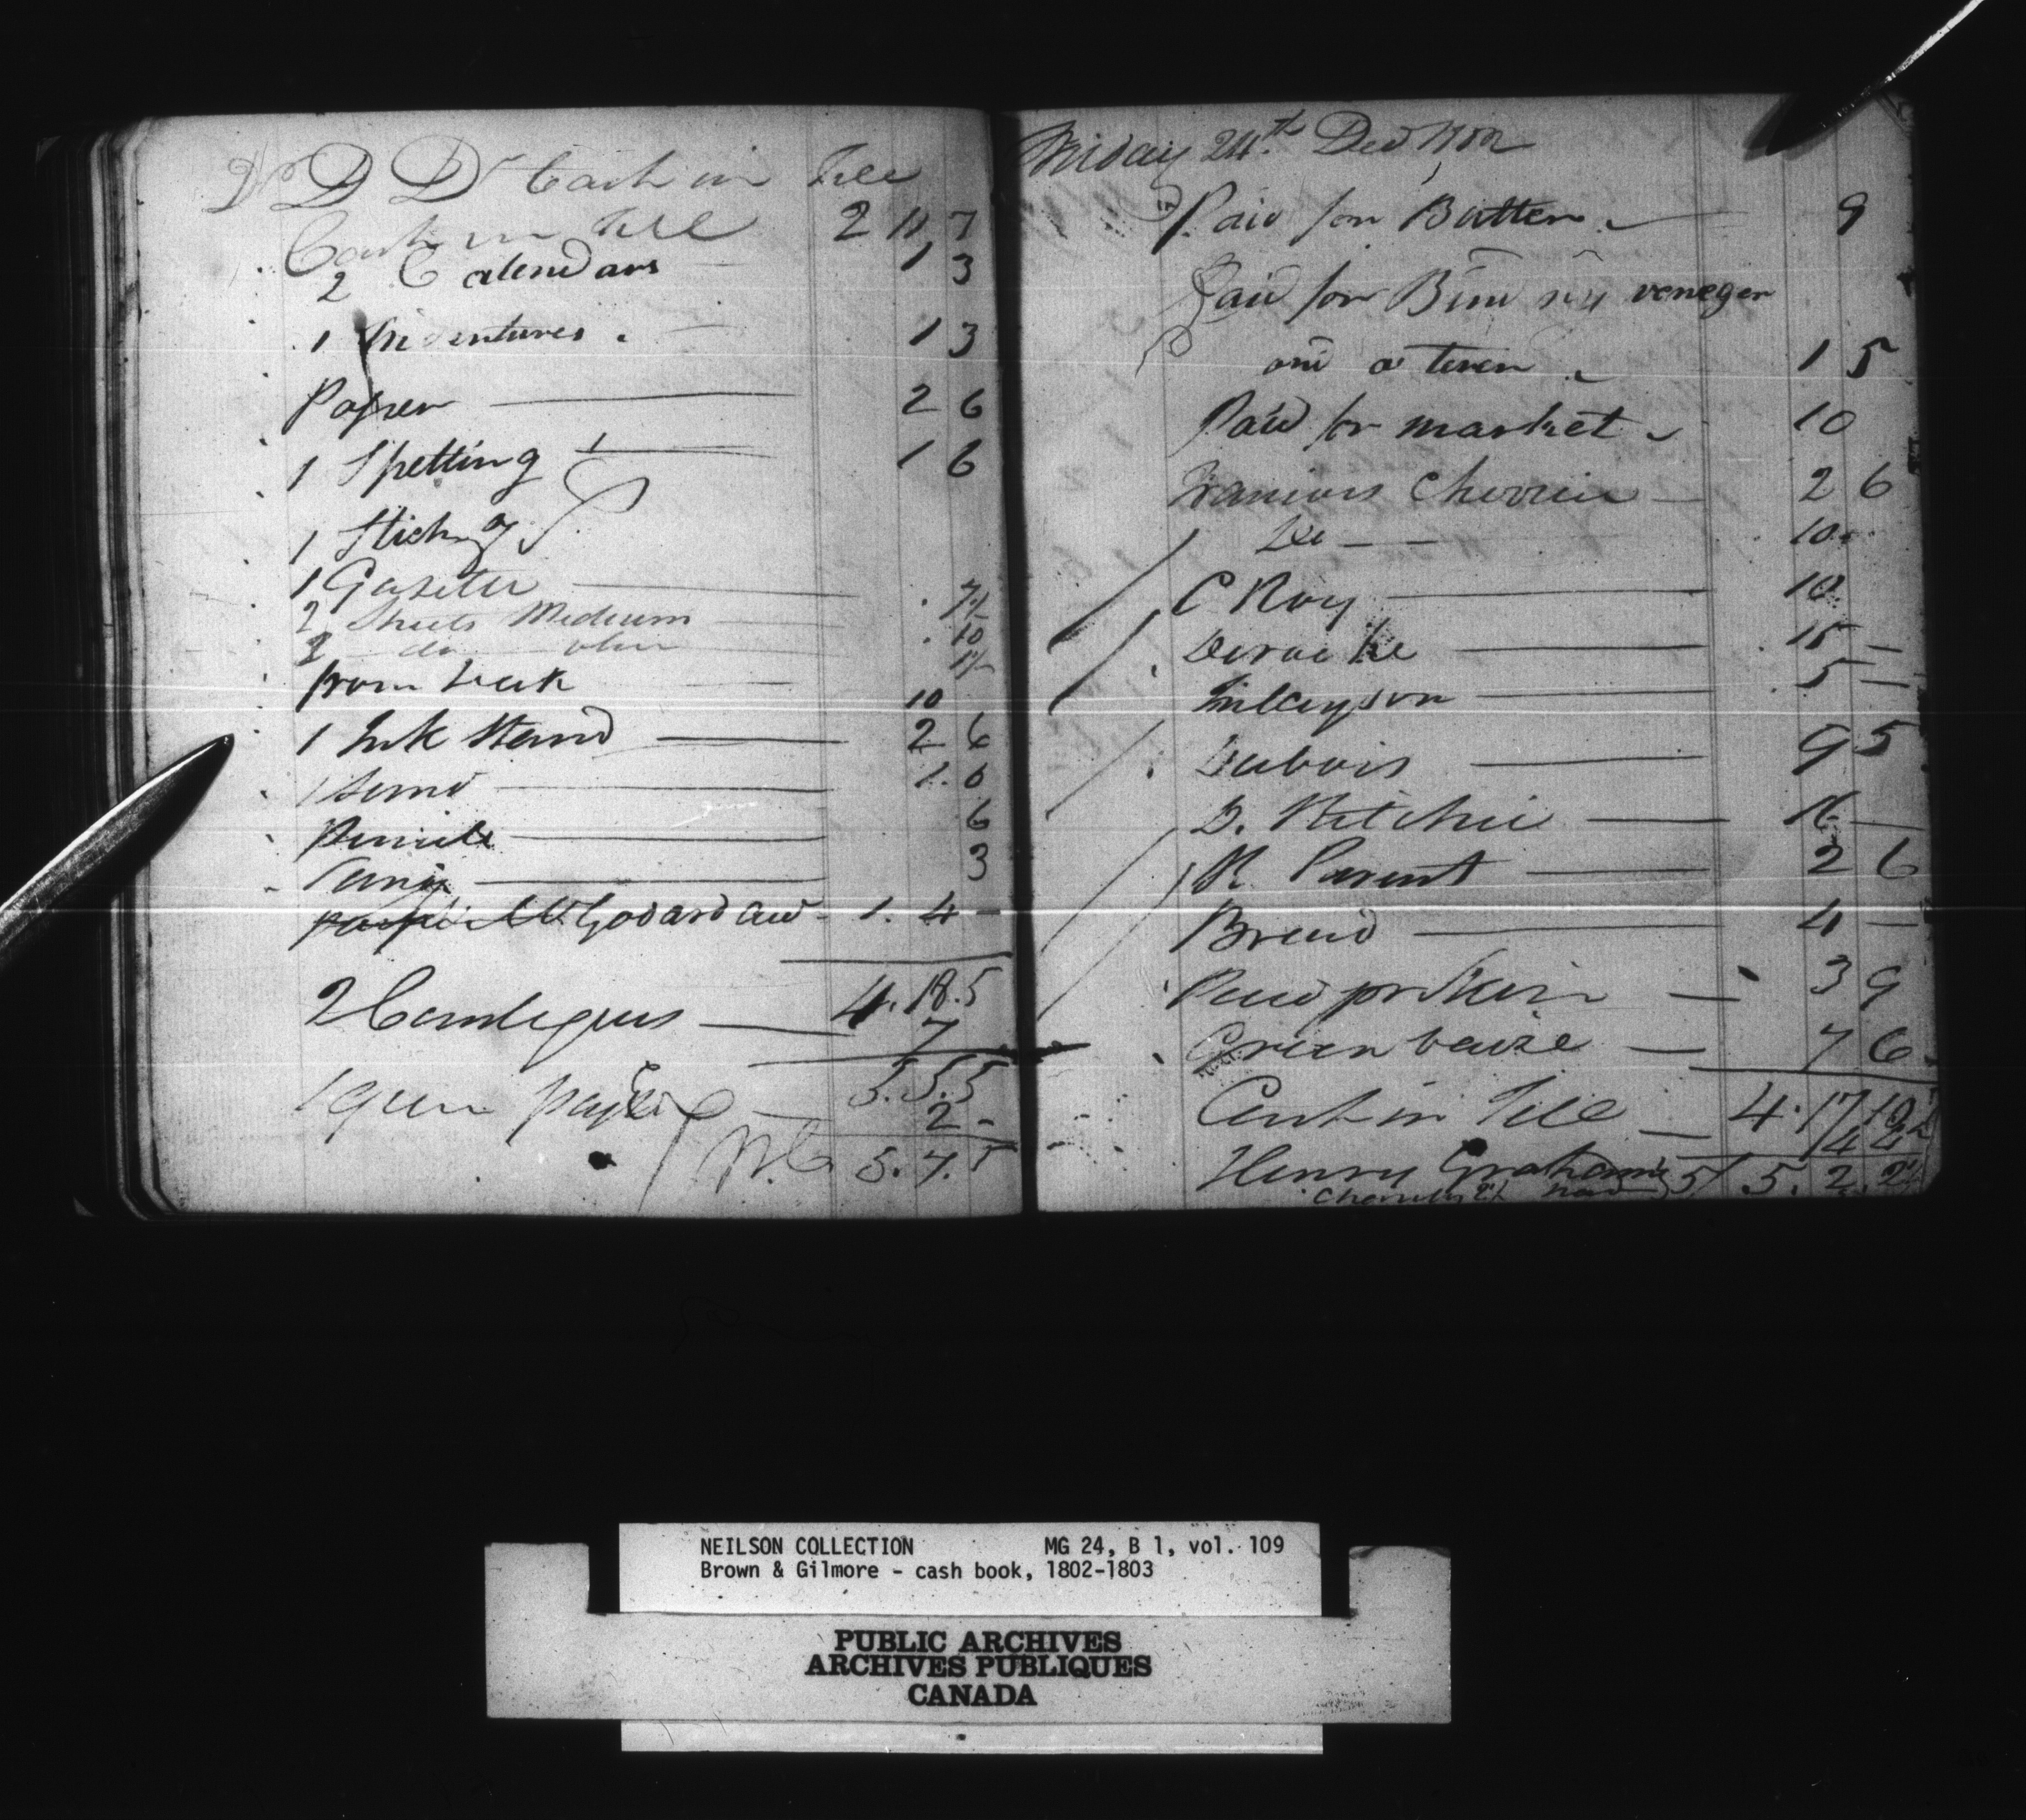 D D Dr Cash in Till
Cash in Till 2 11 7
2 Calendars 1 3
1 Indentures 1 3
Paper 2 6
1 Spelling 1 6
1 Stick
1 Gazette 7½
2 Sheets Medium 10
2 do
from Desk 10
1 Ink Stand 2 6
1 Sand 1.6
Pencils 6
3
Godard 1. 4 -
4. 18. 5
2 7
5. 5. 5
1 quire paper 2 -
5. 7. 5
Friday 24th Decr 1802
Paid for Butter 9
Paid for veneger
and a 1 5
Paid for market 10
Francois Cherrier 2 6
Do 10
C Roy 10
15 -
Finlayson 5 -
Dubois 9 5
D. Ritchie 16 -
R Parent 2 6
Bread 4 -
Paid for 3 9
Green baize 7 6
Cash in Till 4. 17
Henry Graham 5. 2. 2½
NEILSON COLLECTION MG 24, B 1, vol. 109
Brown & Gilmore - cash book, 1802-1803
PUBLIC ARCHIVES
ARCHIVES PUBLIQUES
CANADA